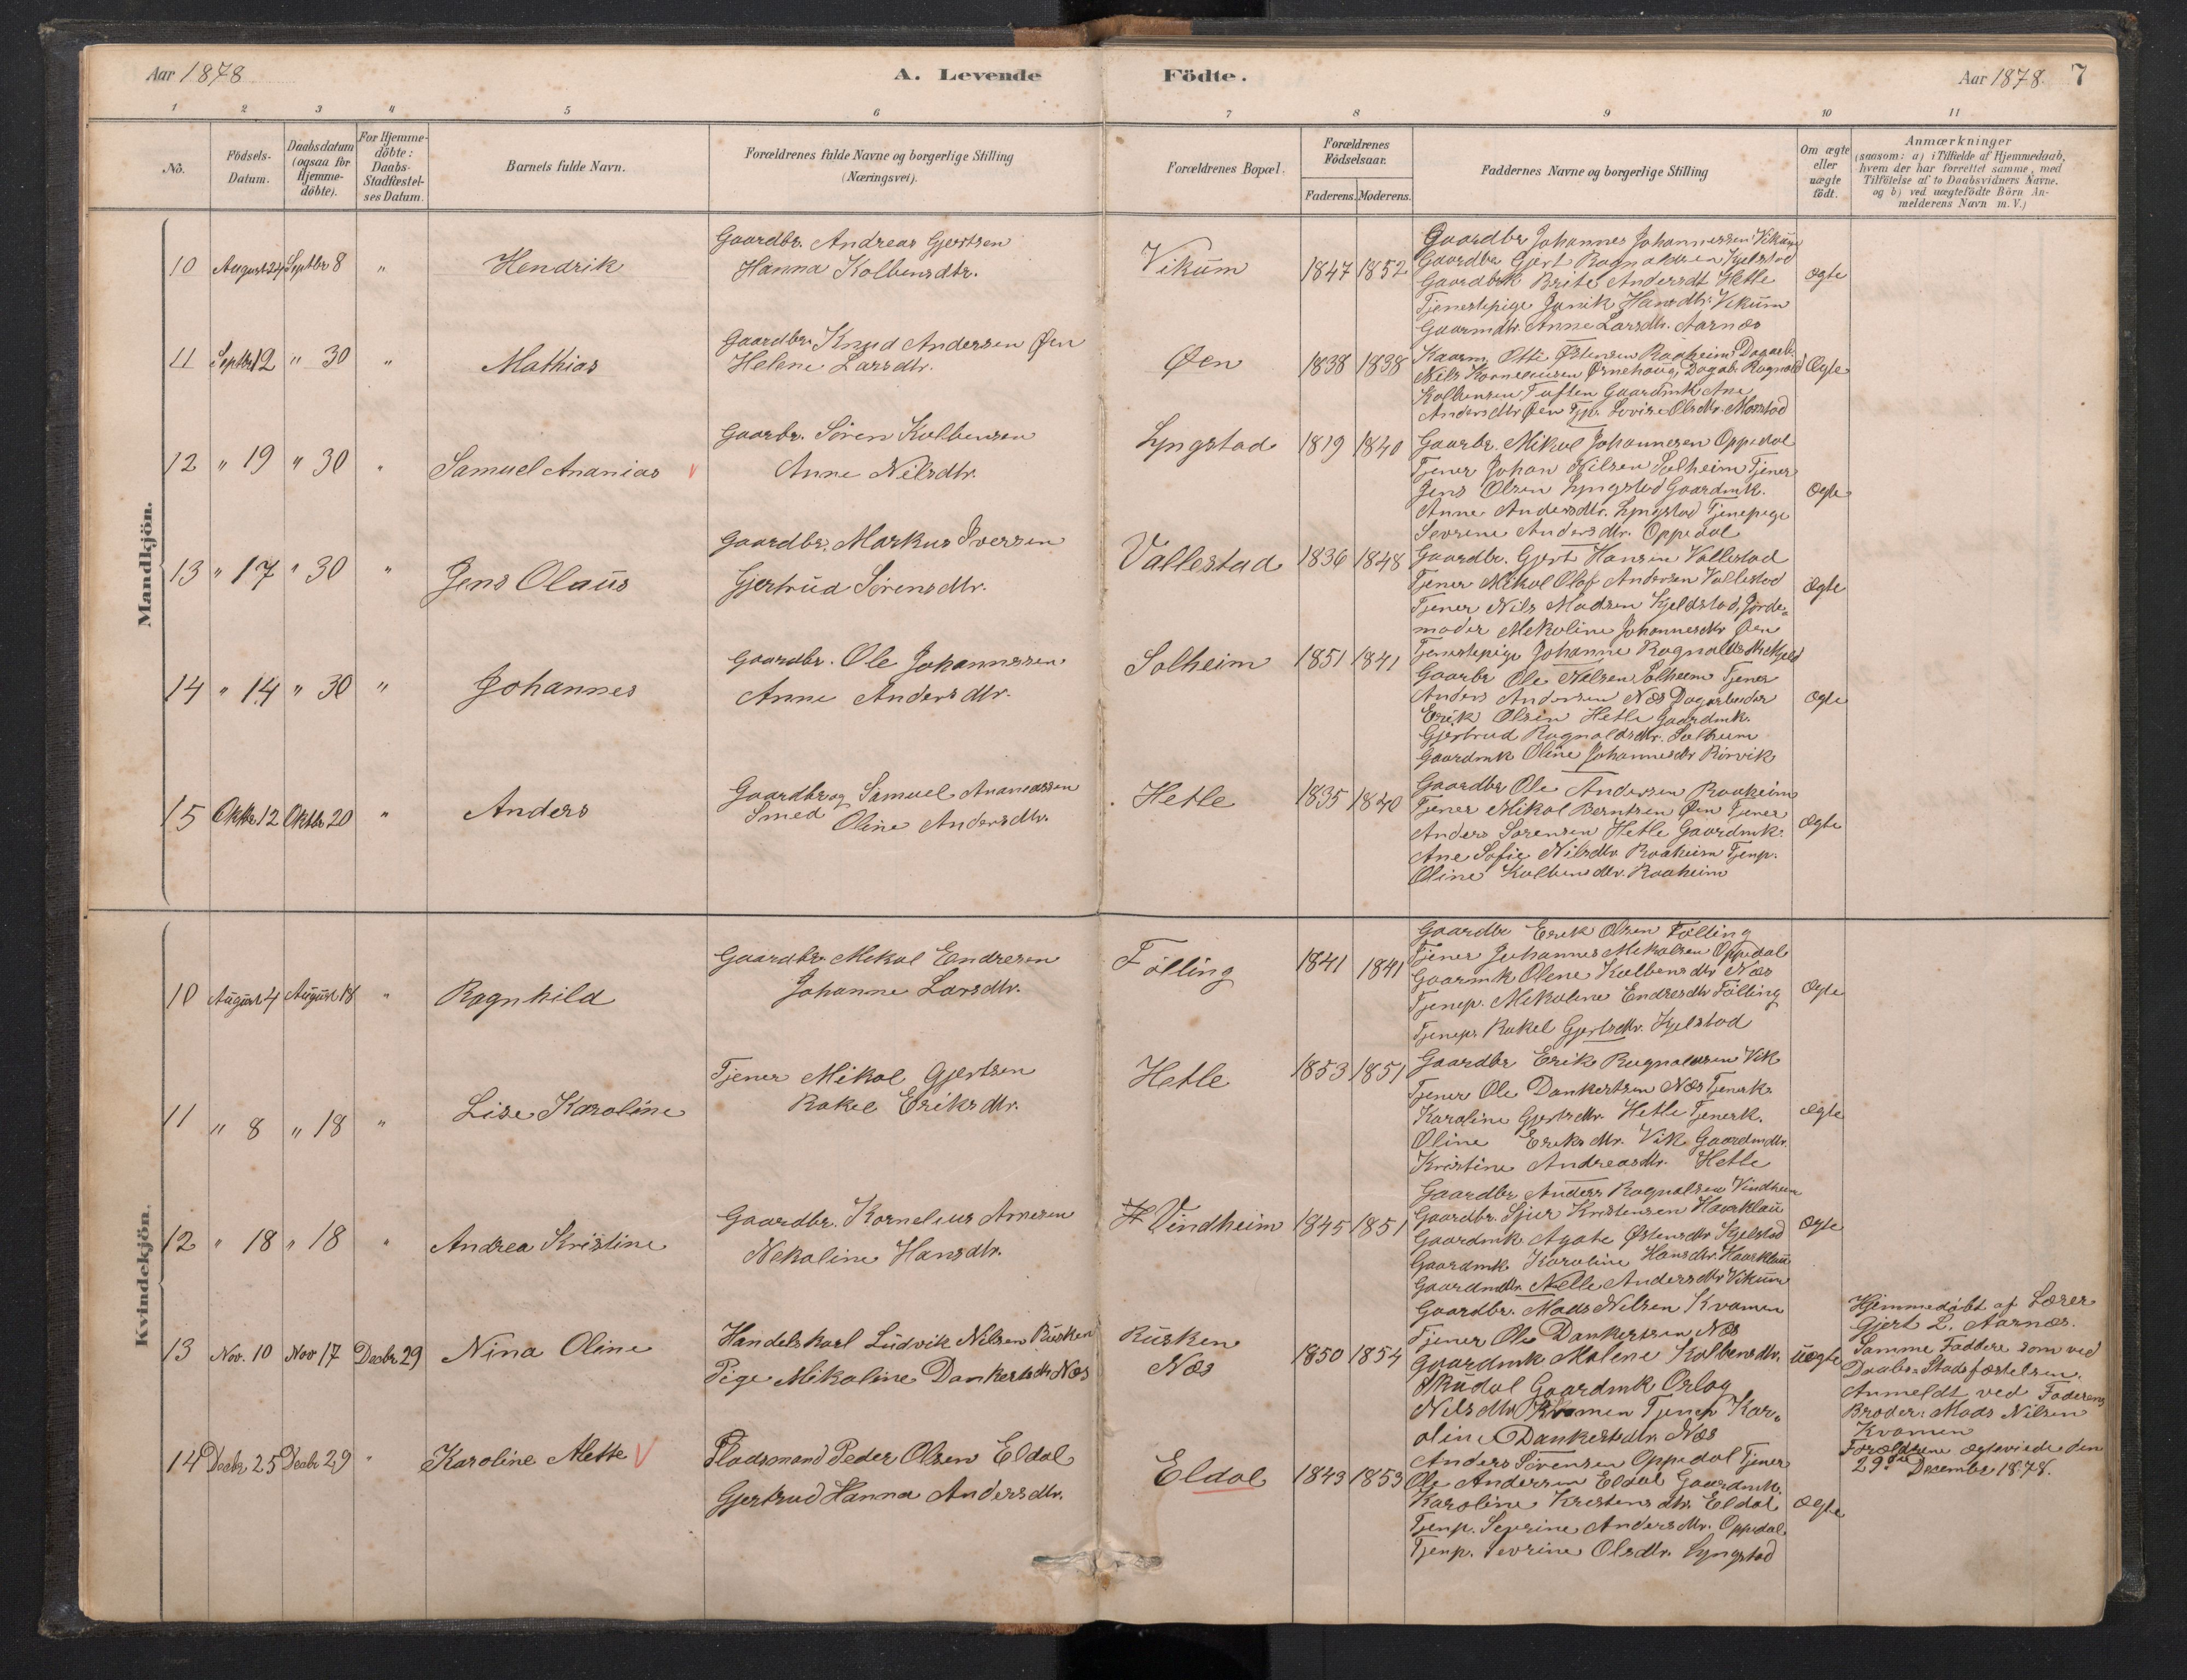 Aar 1878
A. Levende
Födte.
Aar 1878.
7
1 2 3 4 5 6 7 8 9 10 11
No.
Födsels-
Datum.
Daabsdatum
(ogsaa for
Hjemme-
döbte).
For Hjemme-
döbte:
Daabs-
Stadfæstel-
ses Datum.
Barnets fulde Navn.
Forældrenes fulde Navne og borgerlige Stilling
(Næringsvei).
Forældrenes Bopæl.
Forældrenes
Födselsaar.
Faderens. Moderens.
Faddernes Navne og borgerlige Stilling
Om ægte
eller
uægte
födt.
Anmærkninger
(saasom: a) i Tilfælde af Hjemmedaab,
hvem der har forrettet samme, med
Tilföielse af to Daabsvidners Navne,
og b) ved uægtefödte Börn An-
melderens Navn m. V.)
Mandkjön.
10 August 24 Septbr 8 " Hendrik
Gaardbr. Andreas Gjertsen
Hanna Kolbensdtr.
Vikum 1847 1852
Gaardbr Johannes Johannessen Vikum
Gaardbr Gjert Ragnaldsen Kjelstad
Gaardbrk Brite Andersdt Hetle
Tjenestepige Janik Hansdtr. Vikum
Gaarmdtr. Anne Larsdtr. Aarnæs
ægte
11 Septbr 12 " 30 " Mathias
Gaardbr. Knud Andersen Øen
Helene Larsdtr.
Øen 1838 1838
Kaarm. Otte Østensen Raaheim Dagarb.
Nils Korneliusen Ørnehaug, Dagab. Ragnald
Kolbensen Tuften Gaardmk Ane
Andersdtr Øen Tjp. Lovise Olsdtr.
Ægte
12 " 19 " 30 " Samuel Ananias
Gaarbr. Sören Kolbensen
Anne Nilsdtr.
Lyngstad 1819 1840
Gaarbr. Mikal Johannesen Oppedal
Tjener Johan Nilsen Solheim Tjener
Jens Olsen Lyngstad Gaardmk.
Anne Andersdtr. Lyngstad Tjenepige
Sevrine Andersdtr. Oppedal
Ægte
13 " 17 " 30 " Jens Olaus
Gaardbr. Markus Iversen
Gjertrud Sörensdtr.
Vallestad 1836 1848
Gaardbr. Gjert Hansen Vallestad
Tjener Mikal Olaf Andersen Vallestad
Tjener Nils Madsen Kjeldstad, Jorde-
moder Mekoline Johannesdtr Øen
Tjenestepige Johanne Ragnaldsdtr
Ægte
14 " 14 " 30 " Johannes
Gaardbr. Ole Johannessen
Anne Andersdtr.
Solheim 1851 1841
Gaarbr Ole Nelsen Solheim Tjener
Anders Andersen Næs Dagarbeider
Erik Olsen Hetle Gaardmk.
Gjertrud Ragnaldsdtr. Solheim
Gaardmk Oline Johannesdtr Rörvik
Ægte
15 Oktbr 12 Oktbr 20 " Anders
Gaardbr og Samuel Ananiassen
Smed Oline Andersdtr.
Hetle 1835 1840
Gaardbr Ole Andersen Raaheim
Tjener Mikal Berntsen Øen Tjener
Anders Sorensen Hetle Gaardmk.
Ane Sofie Nilsdtr Raaheim Tjenp.
Oline Kolbensdtr. Raaheim
Ægte
Kvindekjön.
10 August 4 August 18 " Ragnhild
Gaardbr. Mekal Endresen
Johanne Larsdtr.
Fölling 1841 1841
Gaardbr Erik Olsen Fölling
Tjener Johannes Mekalsen Oppedal
Gaarmk Olene Kolbensdtr Næs
Tjenep. Mekoline Endresdtr Fölling
Tjenep. Rakel Gjertsdtr. Kjelstad
Ægte
11 " 8 " 18 " Lise Karoline
Tjener Mikal Gjertsen
Rakel Eriksdtr.
Hetle 1853 1851
Gaardbr Erik Ragnaldsen Vik
Tjener Ole Dankertsen Næs Tjenerk.
Karoline Gjertsdtr. Hetle Tjenerk.
Oline Eriksdtr. Vik Gaardmdtr.
Kristine Andreasdtr. Hetle
Ægte
12 " 18 " 18 " Andrea Kristine
Gaardbr. Kornelius Arnesen
Nekoline Hansdtr.
Vindheim 1845 1851
Gaardbr Anders Ragnalsen Vindheim
Gaardbr. Sjur Kristensen Haarklau
Gaardmk Agate Østensdtr Kjelstad
Gaardmk Karoline Hansdtr. Haarklau
Gaardmdtr. Nelle Andersdtr Vikum
Ægte
13 Nov. 10 Nov 17 Decbr 29 Nina Oline
Handelskarl Ludvik Nilsen Rusken
Pige Mikoline Dankertsdtr Næs
Rusken
Næs
1850 1854
Gaardbr. Mads Nelsen Kvamen
Tjener Ole Dankertsen Næs
Gaardmk Malene Kolbensdtr.
Skudal Gaardmk Orlog
Nilsdtr Kvamen Tjenep Kar-
oline Dankertsdtr. Næs
uægte
Hjemmedöbt af Lærer
Gjert L. Aarnæs.
Samme Faddere som ved
Daabs-Stadfæstelsen.
Anmeldt ved Faderens
Broder: Mads Nilsen
Kvamen
Forældrene ægteviede den
29de December 1878.
14 Decbr 25 Decbr 29 " Karoline Mette
Pladsmand Peder Olsen Eldal
Gjertrud Hanna Andersdtr.
Eldal 1843 1853
Anders Sörensen Oppedal Tjener
Ole Andersen Eldal Gaardmk.
Karoline Kristensdtr Eldal
Tjenp. Sevrine Andersdtr. Oppedal
Tjenp. Sevrine Olsdtr. Lyngstad
Ægte